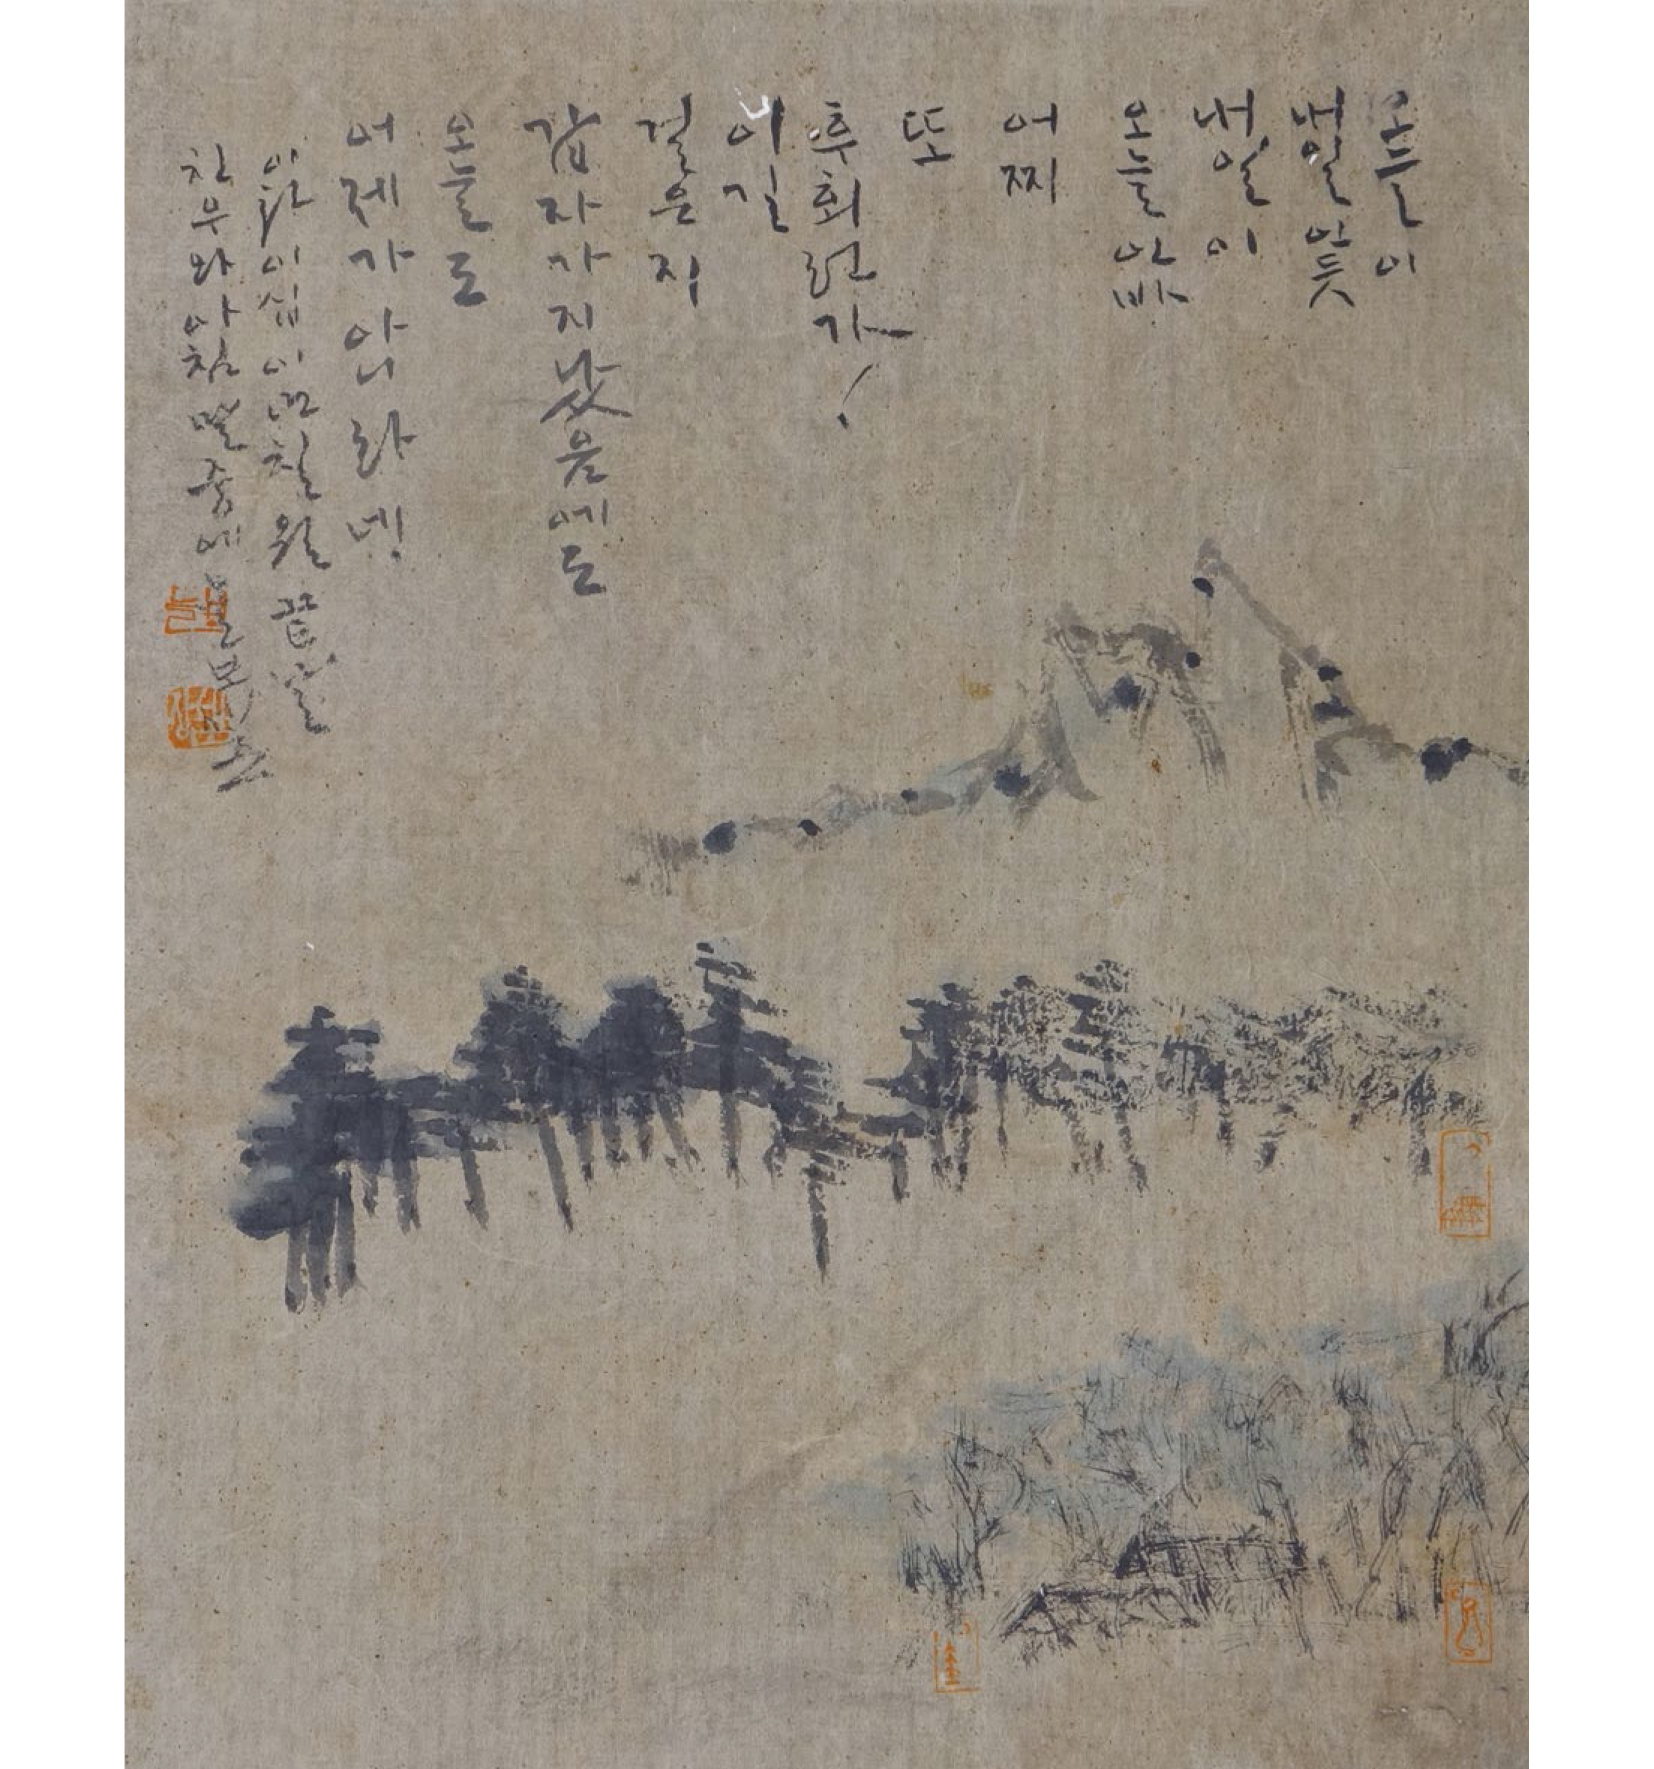 오늘이
내일인듯
내일이
오늘인바
어찌
또
후회런가!
이길
걸은지
갑자가지났음에도
오늘도
어제가아니라네!
이천이십이년칠월끝날
친우와아침
중에